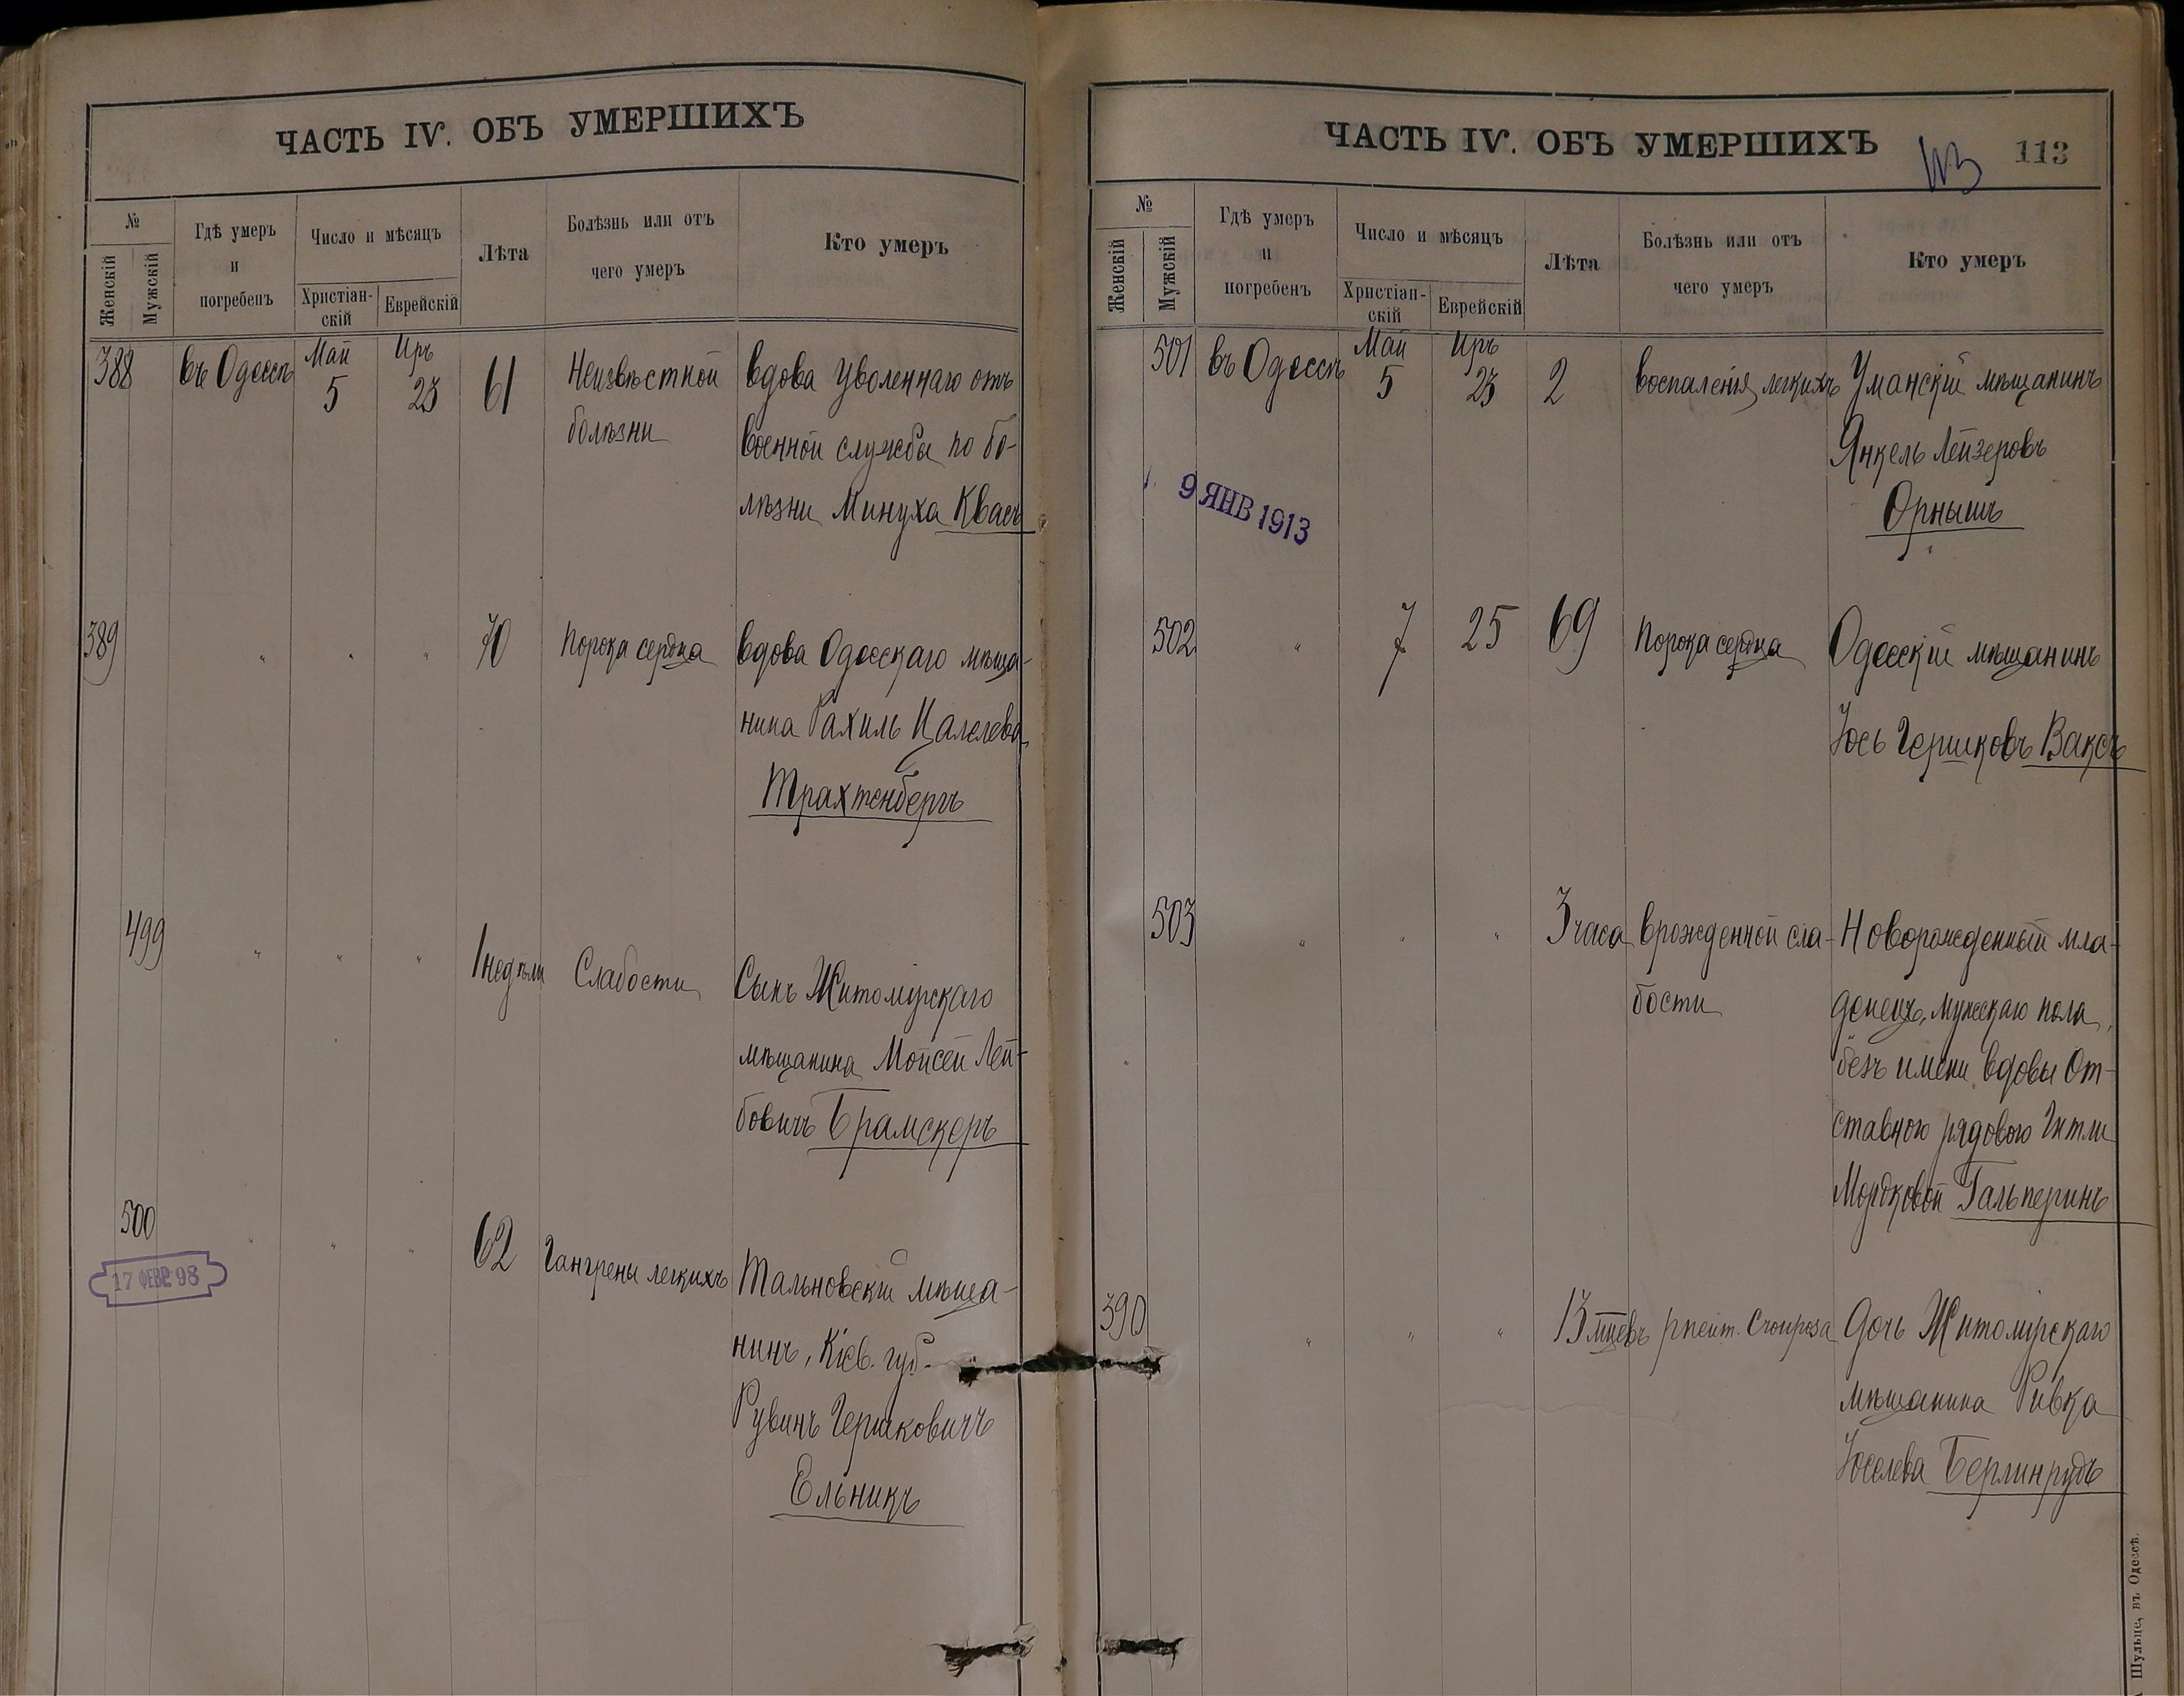 ЧАСТЬ IV. ОБЪ УМЕРШИХЪ
№
Женскій
Мужскій
Гдѣ умеръ
и
погребенъ
Число и мѣсяцъ
Христіан-
скій
Еврейскій
Лѣта
Болѣзнь или отъ
чего умеръ
Кто умеръ
388 въ Одессѣ Май 5 Иръ 23 61 Неизвѣстной вдова уволеннаго отъ
болѣзни военной службы по бо-
лѣзни Минуха Квасъ
389 " " " 70 Порока сердца вдова Одесскаго мѣща-
нина Рахиль Цалелева
Трахтенбергъ
499 " " " 1 недѣли Слабости Сынъ Житомірскаго
мѣщанина Мойсей Лей-
бовичъ Брамскеръ
500 " " " 62 Гангрены легкихъ Тальновскій мѣща-
17 ФЕВР 98
нинъ, Кіев. губ.
Рувинъ Гершковичъ
Ельникъ
ЧАСТЬ IV. ОБЪ УМЕРШИХЪ
113 113
№
Женскій
Мужскій
Гдѣ умеръ
и
погребенъ
Число и мѣсяцъ
Христіан-
скій
Еврейскій
Лѣта
Болѣзнь или отъ
чего умеръ
Кто умеръ
501 въ Одессѣ Май 5 Иръ 23 2 воспаленія легкихъ Уманскій мѣщанинъ
Янкель Лейзеровъ
9 ЯНВ 1913
Орнышъ
502 " 7 25 69 Порока сердца Одесскій мѣщанинъ
Іось Гершковъ Ваксъ
503 " " " 3 часа врожденной сла- Новорожденный мла-
бости денецъ, мужскаго пола,
безъ имени вдовы От-
ставного рядового Гитли
Мордковой Гальперинъ
390 " " " 13 мцевъ pneum. Crouposa Дочь Житомірскаго
мѣщанина Ривка
Іоселева Берлинрудъ
Шульце, въ Одессѣ.